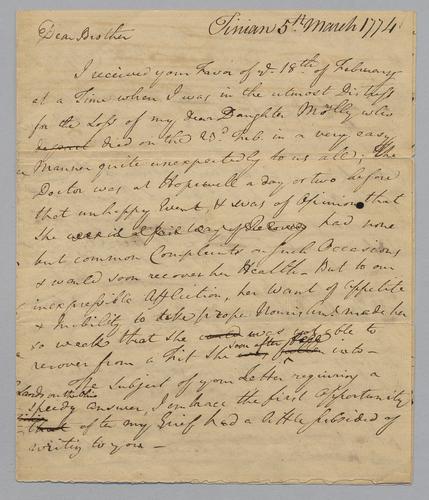 Dear Brother
Tinian 5th March 1774
I received your Favor of ye 18th of February
at a Time when I was in the utmost Distress
for the Loss of my dear Daughter Molly who
died on the 23d Feb. in a very easy
Manner quite unexpectedly to us all; The
Doctor was at Hopewell a day or two before
that unhappy Event, & was of Opinion that
She had none
but common Complaints on such Occasions
& would soon recover her Health. But to our
inexpressible Affliction, her want of Appetite
& Inability to take proper Nourishment made her
so weak that she was not able to
recover from a Fit she soon after fell into—
The Subject of your Letter requiring a
speedy answer, I embrace the first opportunity
after my Grief had a little subsided of
writing to you—